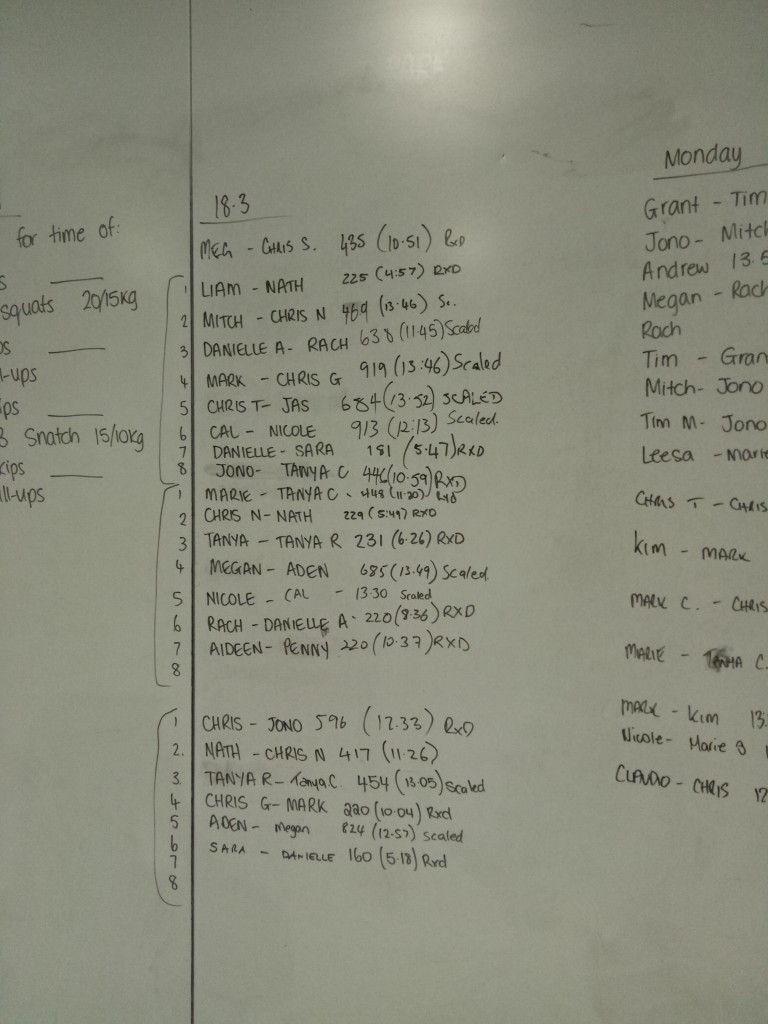 for time of:
s
squats 20/15kg
ps
l-ups
ips
3 Snatch 15/10kg
kips
ll-ups
18.3
MEG - CHRIS S. 435 (10.51) RxD
1 LIAM - NATH 225 (4:57) RXD
2 MITCH - CHRIS N 469 (13.46) Sc.
3 DANIELLE A - RACH 638 (11.45) Scaled
4 MARK - CHRIS G 919 (13:46) Scaled
5 CHRIS T - JAS 684 (13.52) SCALED
6 CAL - NICOLE 913 (12:13) Scaled.
7 DANIELLE - SARA 181 (5.47) RXD
8 JONO - TANYA C 446 (10.59) RXD
1 MARIE - TANYA C - 448 (11:20) Rxd
2 CHRIS N - NATH 229 (5:49) RXD
3 TANYA - TANYA R 231 (6.26) RXD
4 MEGAN - ADEN 685 (13.49) Scaled.
5 NICOLE - CAL - 13.30 Scaled
6 RACH - DANIELLE A - 220 (8.36) RXD
7 AIDEEN - PENNY 220 (10.37) RXD
8
1 CHRIS - JONO 596 (12.33) RxD
2. NATH - CHRIS N 417 (11.26)
3. TANYA R - Tanya C. 454 (13.05) Scaled
4 CHRIS G - MARK 220 (10.04) Rxd
5 ADEN - Megan 824 (12.57) Scaled
6 SARA - DANIELLE 160 (5.18) Rxd
7
8
Monday
Grant - Tim
Jono - Mitch
Andrew 13.5
Megan - Rach
Rach
Tim - Gran
Mitch - Jono
Tim M - Jono
Leesa - Marie
CHRIS T - CHRIS
KIM - MARK
MARK C. - CHRIS
MARIE - TANYA C.
MARK - KIM 13:
Nicole - Marie
CLAUDIO - CHRIS 12